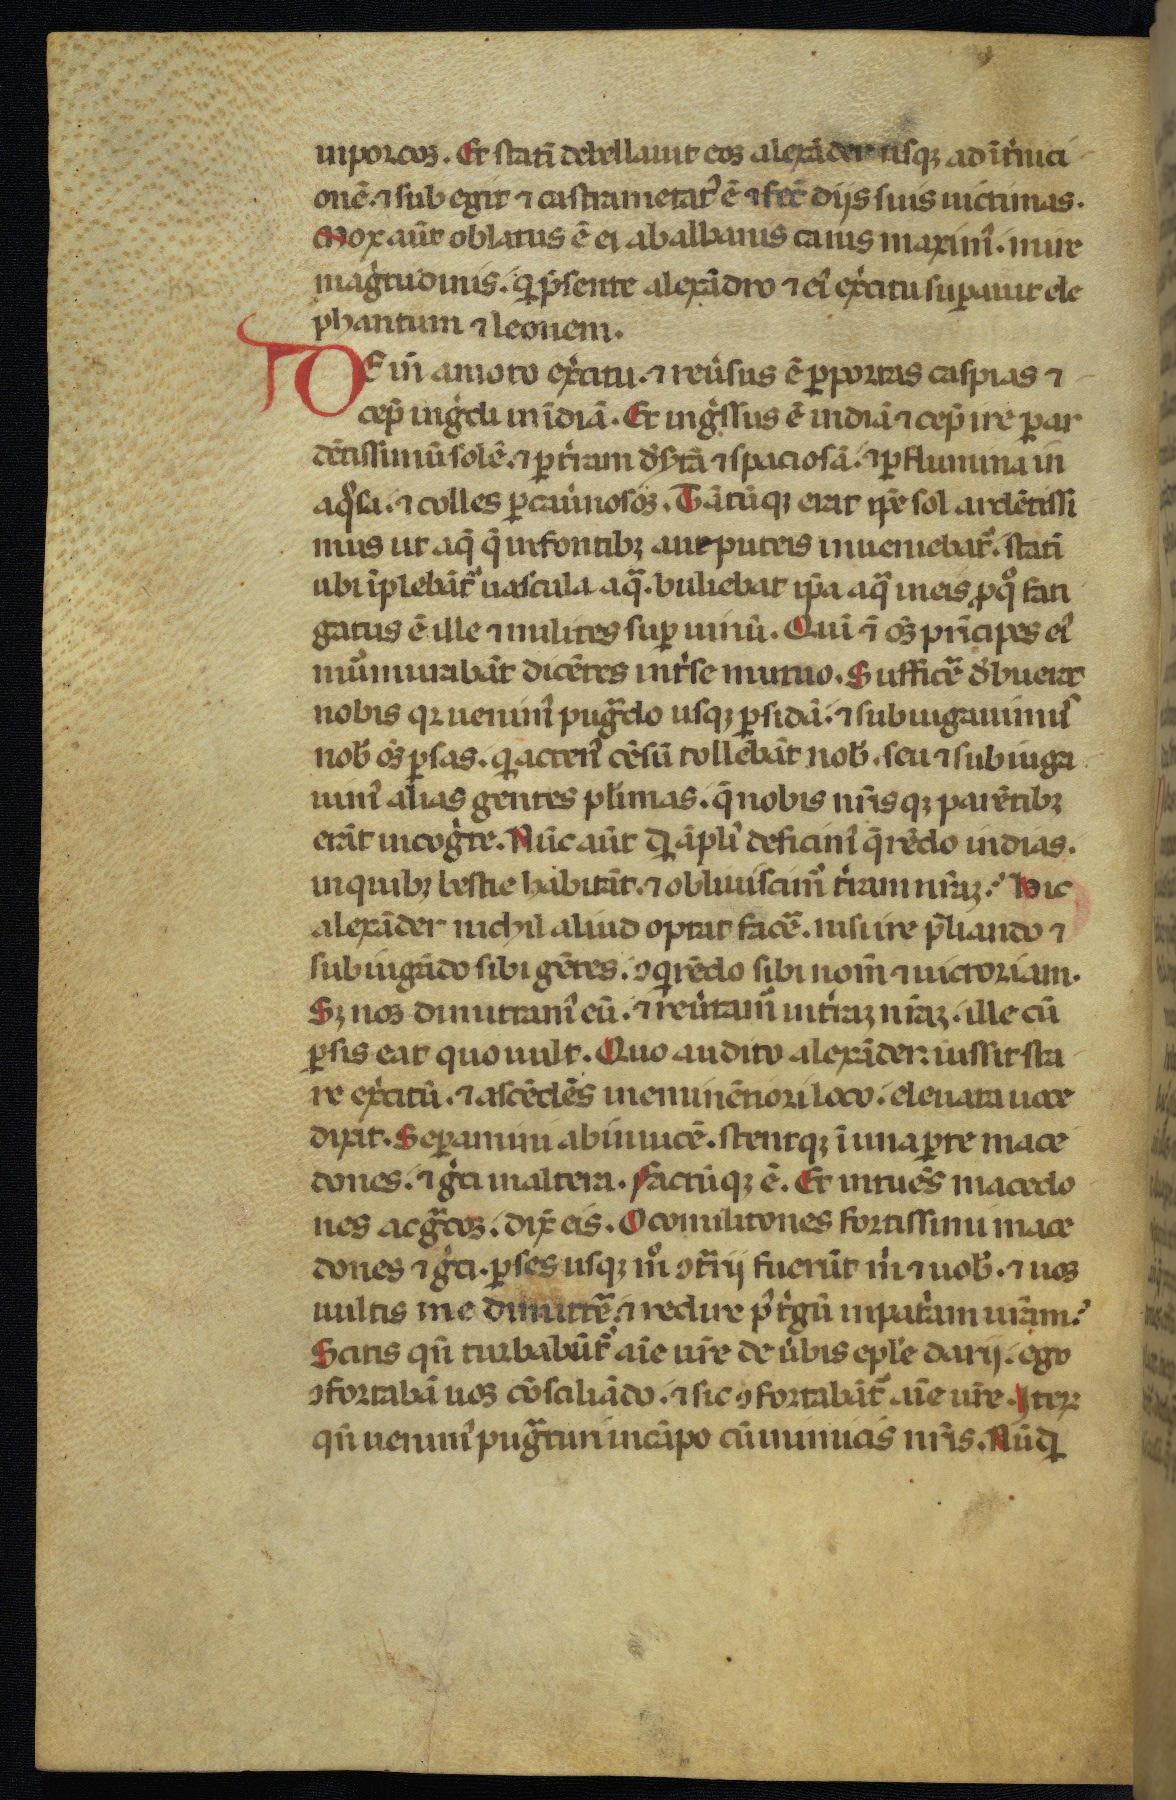 in porcos. Et statī debellauit eos alexāder usqꝫ ad īt̾nici
onē. ⁊ sub egit ⁊ castrametat᷒ ē ⁊ fec̄ dijs suis uictimas.
Mox aūt oblatus ē ei ab albanis canis maxim᷒. mire
magͥtudinis. qͥ p̄sente alexādro ⁊ ei᷒ ex̾citu suꝑauit ele
phantum ⁊ leonem.
DEīn amoto ex̾citu. ⁊ reu̾sus ē ꝑ portas caspias ⁊
cep̄ ingͣdi in īdiā. Et ingͣssus ē indiā ⁊ cep̄ ire ꝑ ar
dētissimū solē. ⁊ ꝑ t̾ram ds̾tā ⁊ spaciosā. ⁊ ꝑ flumina in
aqͦsa. ⁊ colles ꝑ cau̾nosos. Tātūqꝫ erat ip̄e sol ardētissi
mus ut aq̄ q̄ in fontibꝫ aut puteis inueniebat᷑. statī
ubi īplebāt᷑ uascula aqͣ. buliebat ip̄a aqͣ in eis ꝓ qͦ fati
gatus ē ille ⁊ milites suꝑ nimiū. Qui ⁊ om̄s prīcipes ei᷒
mu᷒murabāt dicētes int̾ se mutuo. Sufficē᷑ d̾buerat
nobis qꝛ uenim᷒ pugͣdo usqꝫ ꝑsidā. ⁊ subiugauim᷒
nob̾ om̄s ꝑsas. qͥ acten᷒ cēsū tollebāt nob̾. seu ⁊ subiuga
uim᷒ alias gentes pl̾imas. q̄ nobis nr̄isqꝫ parētibꝫ
erāt incogͥte. Nūc aūt qͥd āpli᷒ deficim᷒ q̄rēdo indias.
in quibꝫ bestie habitāt. ⁊ obliuiscim᷑ t̾ram nr̄aꝫ? Hic
alexāder nichil aliud optat facē᷑. nisi ire p̄liando ⁊
subiugādo sibi gētes. ꝯqͥrēdo sibi nom̄ ⁊ uictoriam.
Sꝫ nos dimittam᷒ eū. ⁊ reu̾tam᷑ in t̾raꝫ nr̄aꝫ. ille cū
ꝑsis eat quo uult. Quo audito alexāder. iussit sta
re ex̾citū. ⁊ ascēdēs in eminētiori loco. eleuata uoce
dixit. Seꝑamini ab inuicē. stentqꝫ ī una ꝑte mace
dones. ⁊ gͤci in altera. Factūqꝫ ē. Et intuēs macedo
nes ac gͣcos. dix̄ eis. O comilitones fortissimi mace
dones ⁊ gͤci. ꝑses usqꝫ mͦ ꝯt̾rij fuerūt mͥ ⁊ uob̾. ⁊ uos
uultis me dimittē᷑. ⁊ redire p᷒t̾gū in pat̾am ur̄am?
Scitis qn̄ turbabūt᷑ aīe ur̄e de u̾bis epl̄e darij. ego
ꝯfortabā uos cōsciliādo. ⁊ sic ꝯfortabāt᷑ aīe ur̄e. Iteꝝ
qn̄ uenim᷒ pugͣturi in cāpo cū inimicis nr̄is. Nūqͥd